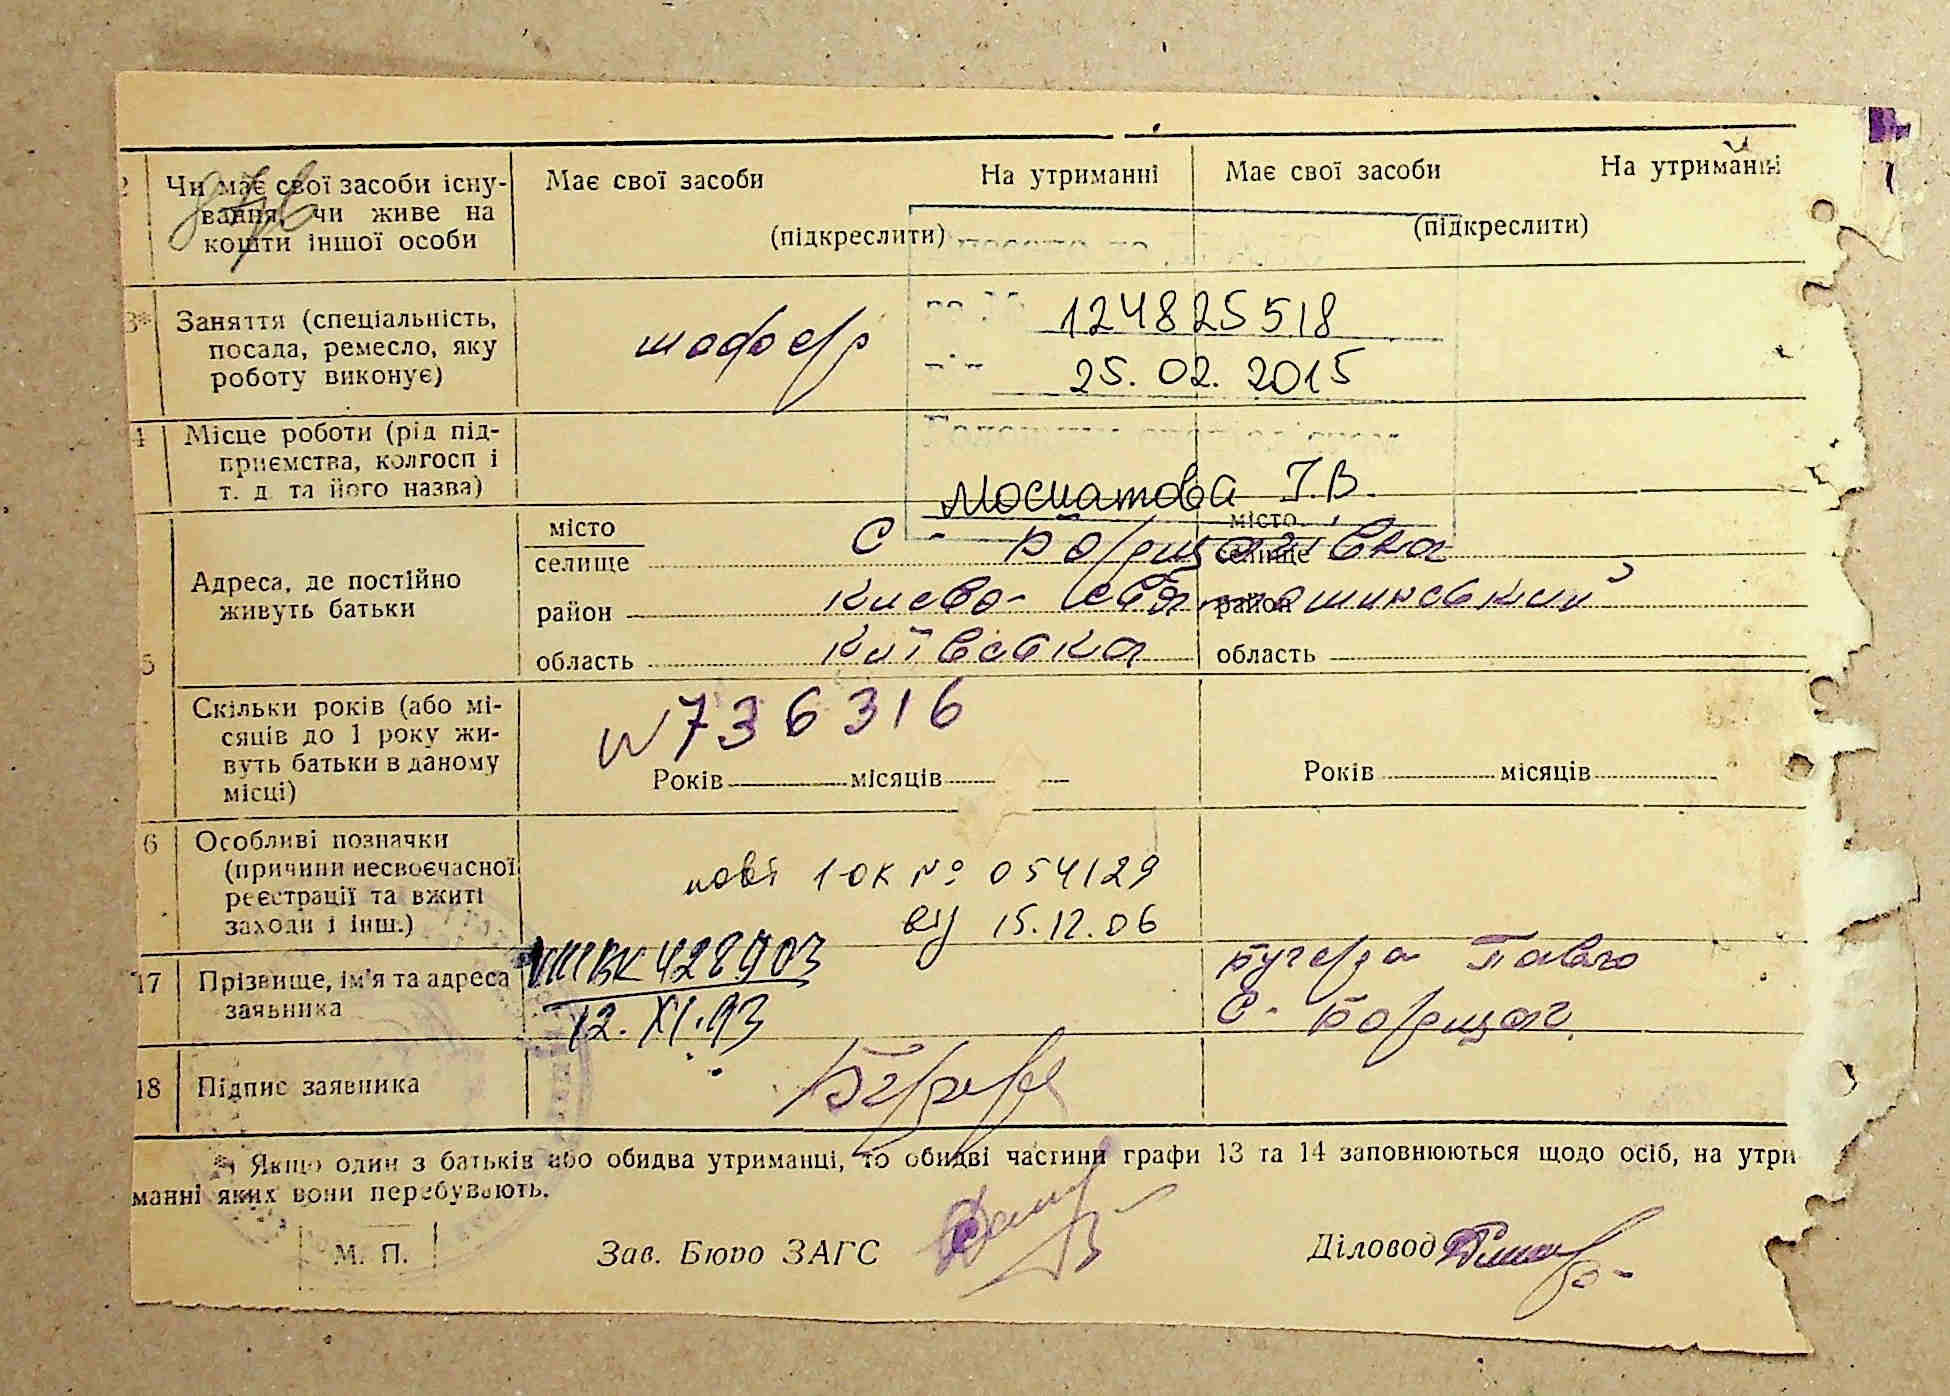 2 Чи має свої засоби існу- Має свої засоби На утриманні Має свої засоби На утриманні
вання, чи живе на
кошти іншої особи (підкреслити) (підкреслити)
3*) Заняття (спеціальність, шофер 124825518
посада, ремесло, яку
роботу виконує) 25.02.2015
4 Місце роботи (рід під-
приємства, колгосп і
т. д. та його назва) І.В.
місто С - Борщагівка місто
селище селище
Адреса, де постійно
живуть батьки район Києво-Святошинський район
5 область Київська область
Скільки років (або мі- N 736316
сяців до 1 року жи-
вуть батьки в даному Років місяців Років місяців
місці)
6 Особливі позначки
(причини несвоєчасної повт 1-ОК № 054129
реєстрації та вжиті
заходи і інш.) 15.12.06
17 Прізвище, ім'я та адреса 428903 Павло
заявника 12.XI.93 С - Борщаг.
18 Підпис заявника
*) Якщо один з батьків або обидва утриманці, то обидві частини графи 13 та 14 заповнюються щодо осіб, на утри
манні яких вони перебувають.
М. П. Зав. Бюро ЗАГС Діловод